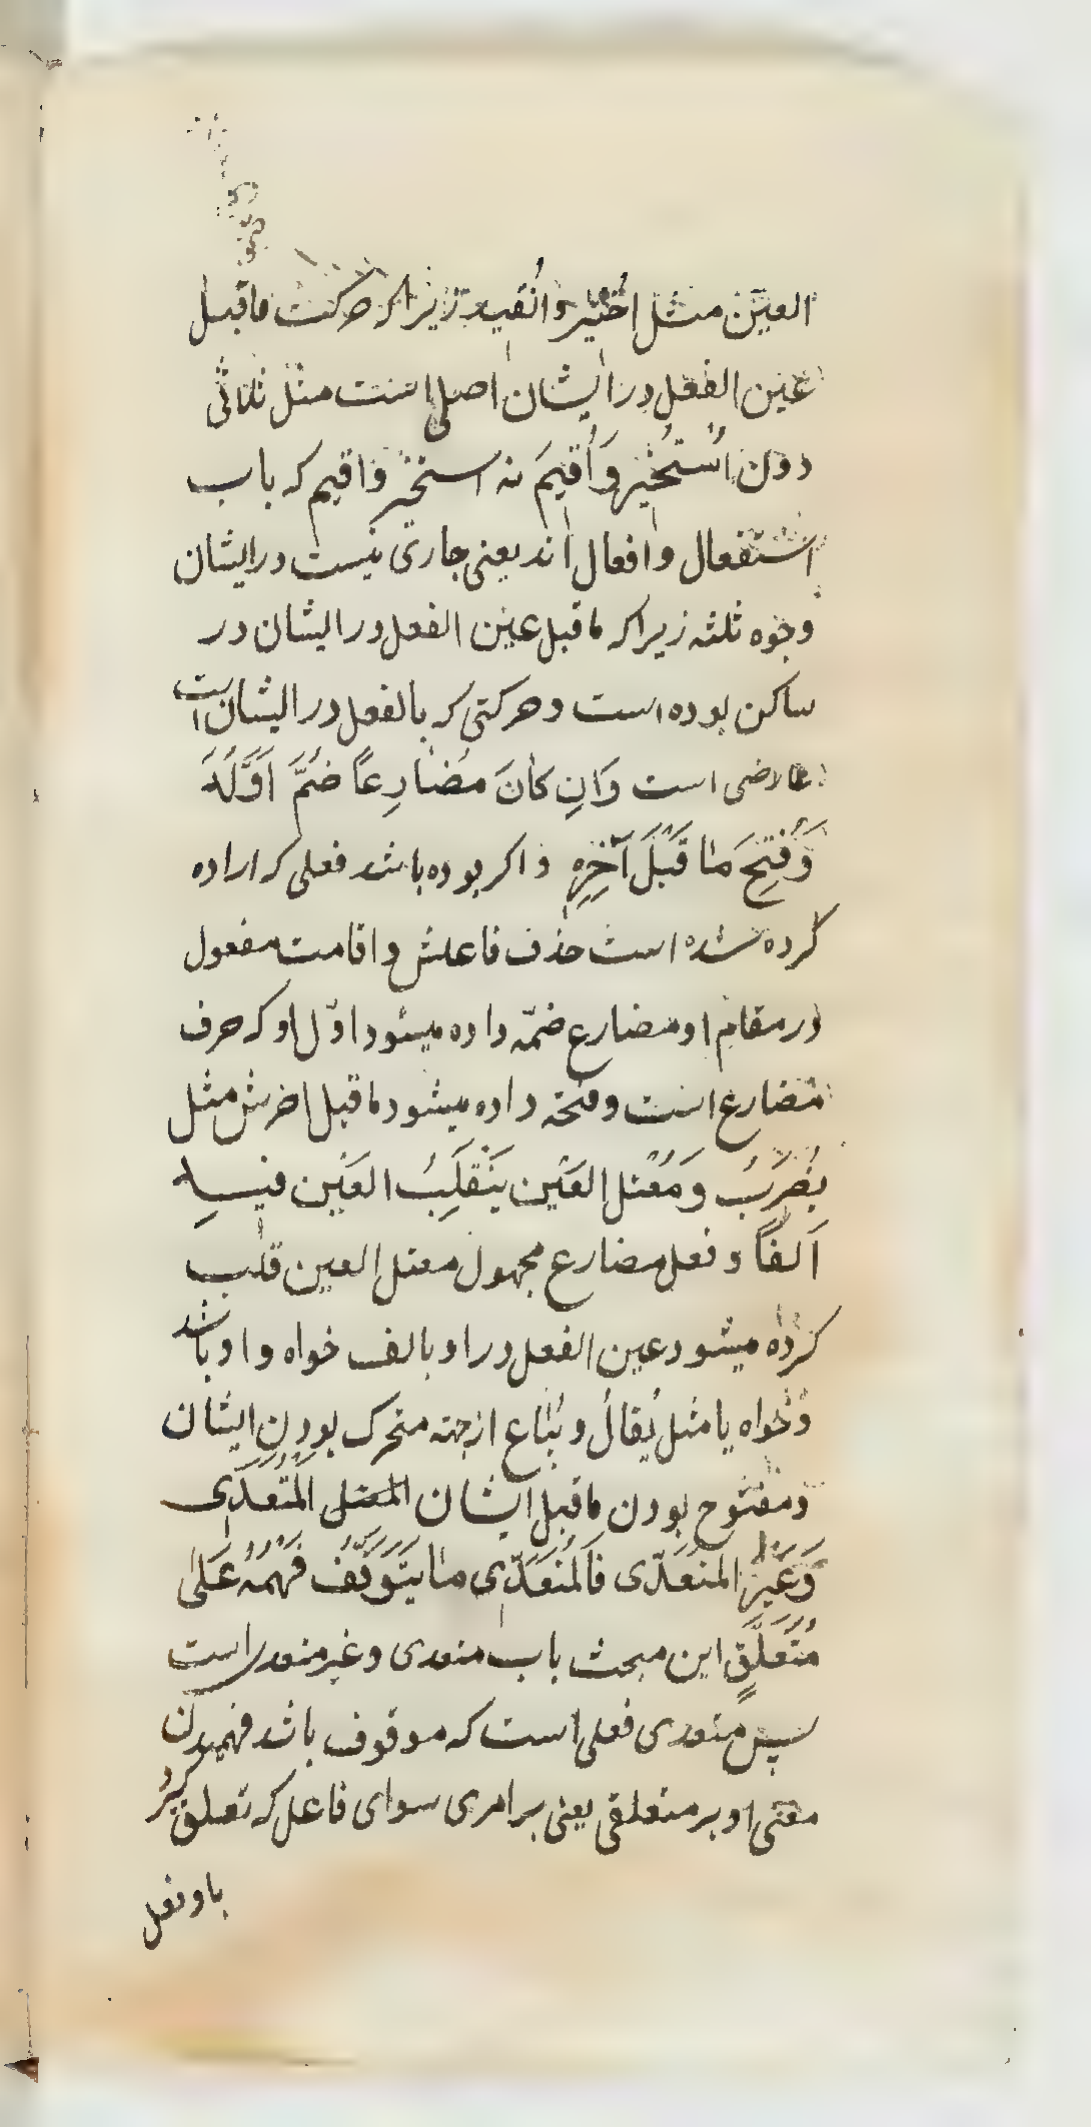 العین مثل اُختیر و اُنقید زیرا که حرکت ماقبل
عین الفعل در ایشان اصلی است مثل ثلاثی
دون اُستُخیر وَ اُقیمَ نه استخیر و اقیم که باب
استفعال و افعال اند یعنی جاری نیست در ایشان
وجوه ثلثه زیرا که ماقبل عین الفعل در ایشان در
ساکن بوده است و حرکتی که بالفعل در ایشان است
عارضی است وَاِن کانَ مُضارِعاً ضُمَّ اَوَّلُهُ
وَفُتِحَ ما قَبْلَ آخِرِهِ و اکر بوده باشد فعلی که اراده
کرده شده است حذف فاعلش و اقامت مفعول
در مقام او مضارع ضمّه داده میشود اوّل او که حرف
مضارع است و فتحه داده میشود ماقبل اخرش مثل
یُضْرَبُ وَمُعْتَل العَیْن یَنْقَلِبُ العَیْن فیهِ
اَلفاً و فعل مضارع مجهول معتل العین قلب
کرده میشود عین الفعل در او بالف خواه واو باشد
و خواه یا مثل یُقالُ و یُباع ازجهة متحرک بودنِ ایشان
و مفتوح بودن ماقبل ایشان المتعدی المُتَعَدّی
وَغَیْرُ المتعَدّی فَالمُتَعَدّی ما یَتَوَقَّفُ فَهْمُهُ عَلی
مُتَعَلَّقٍ این مبحث باب متعدی و غیر متعدی است
پس متعدی فعلی است که موقوف باشد فهمیدن
معنی او بر متعلقی یعنی بر امری سوای فاعل که تعلق کیرد
باو فعل